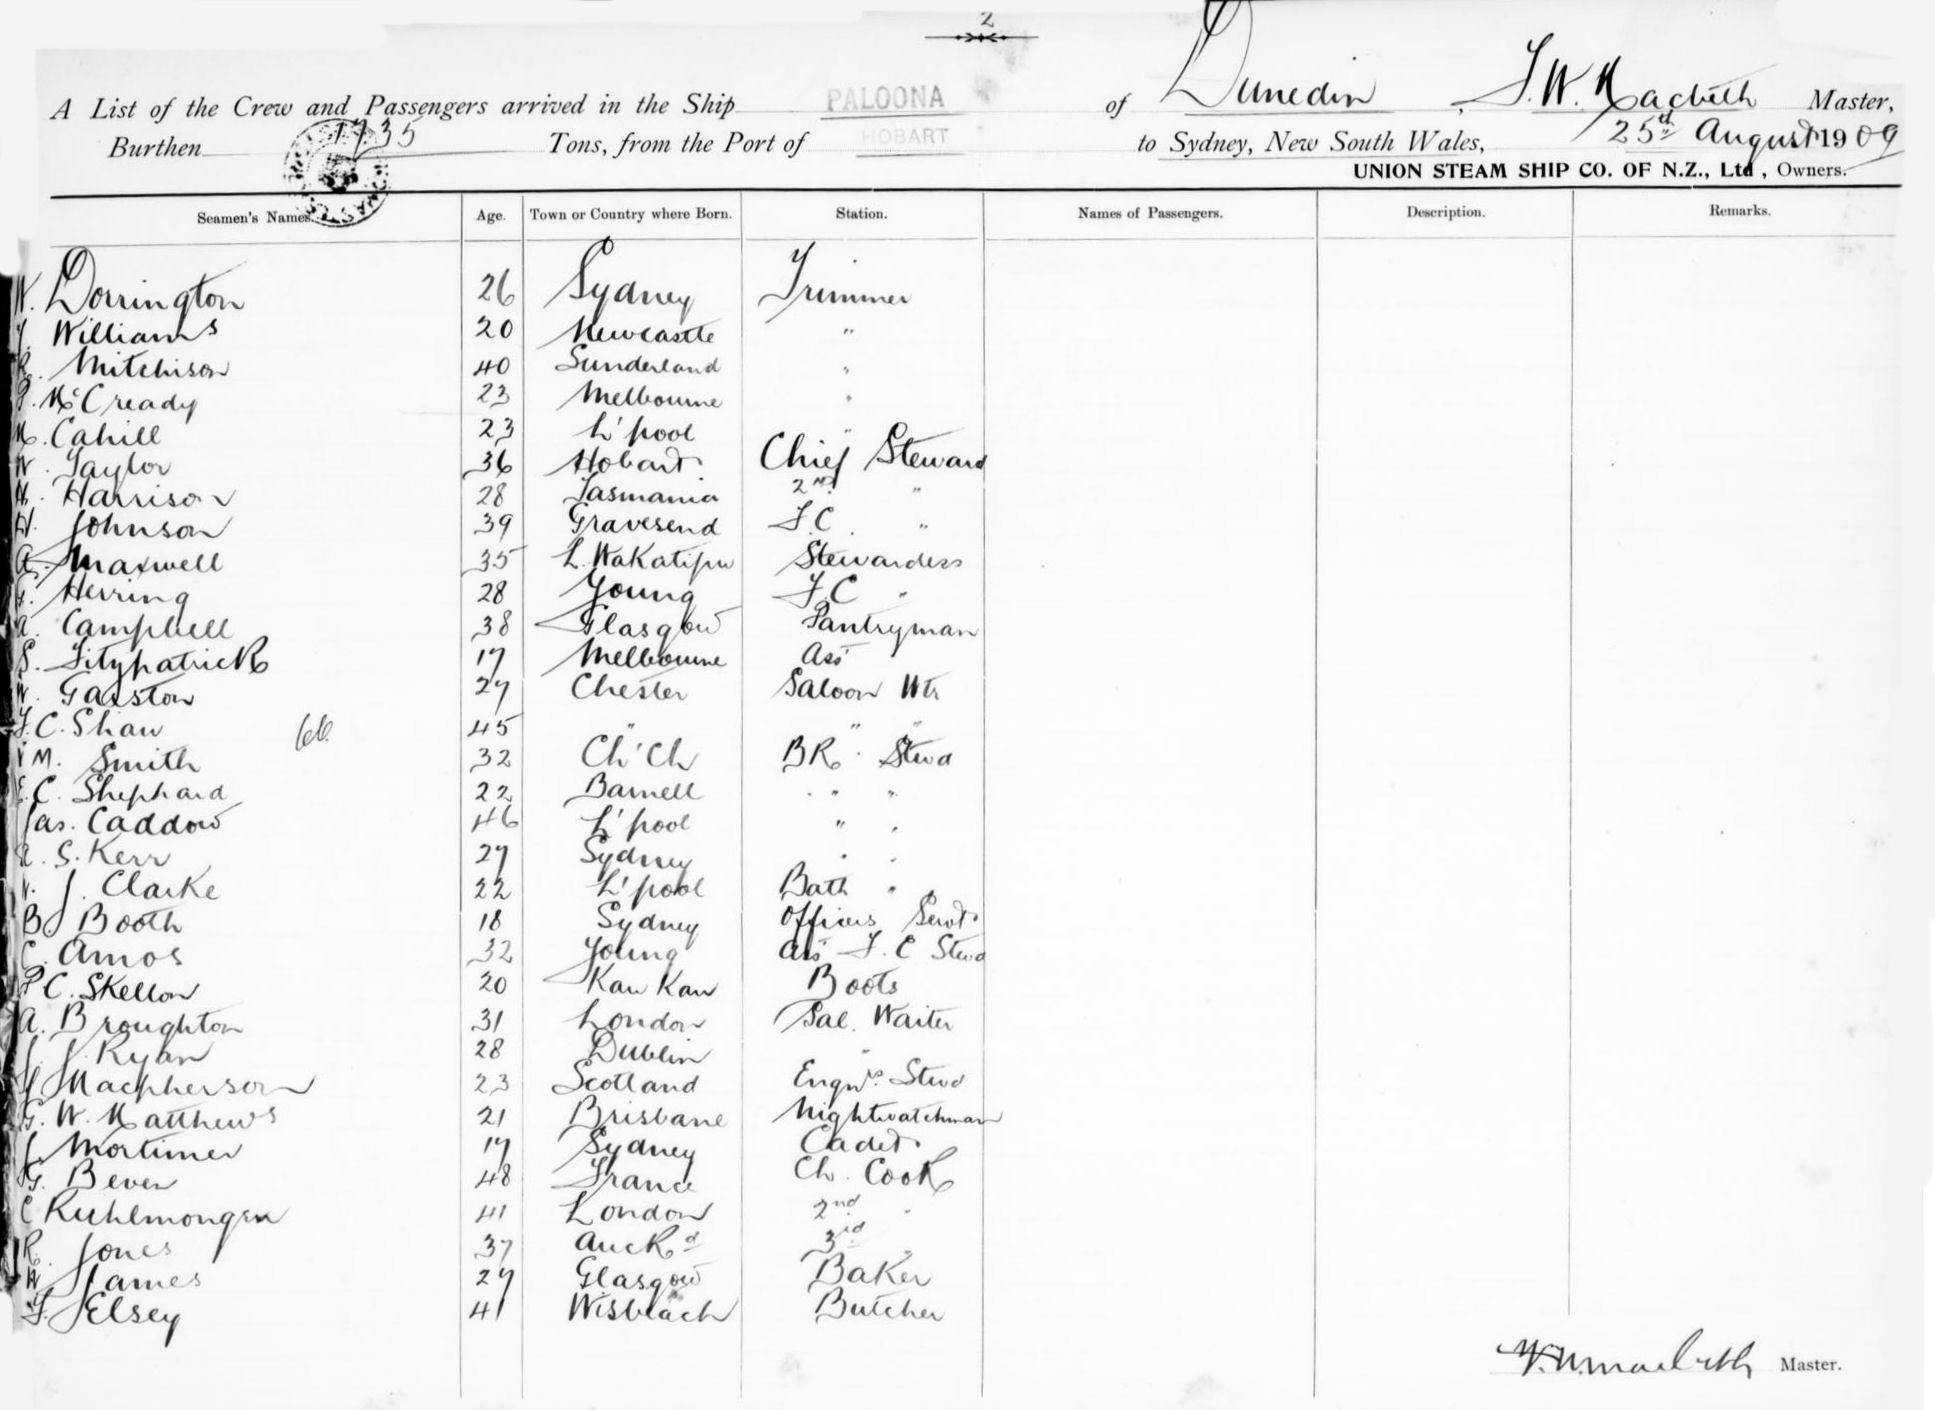 2
A List of the Crew and Passengers arrived in the Ship PALOONA of Dunedin, J. W. Macbeth Master,
Burthen 1735 Tons, from the Port of HOBART to Sydney, New South Wales, 25th August 1909
UNION STEAM SHIP CO. OF N.Z., Ltd, Owners.
Seamen's Names. Age. Town or Country where Born. Station. Names of Passengers. Description. Remarks.
W. Dorrington 26 Sydney Trimmer
Williams 20 Newcastle "
R. Mitchison 40 Sunderland "
McCready 23 Melbourne "
M. Cahill 23 L'pool "
W. Taylor 36 Hobart Chief Steward
H. Harrison 28 Tasmania 2nd "
H. Johnson 39 Gravesend F.C. "
A. Maxwell 35 L. Wakatipu Stewardess
Herring 28 Young F.C "
A. Campbell 38 Glasgow Pantryman
S. Fitzpatrick 17 Melbourne Ass
W. Garston 27 Chester Saloon Wtr
F. C. Shaw 45 " " "
M. Smith 32 Ch'Ch B R. Stwd
E. C. Shephard 22 Barnell " "
Jas. Caddow 46 L'pool " "
S. Kerr 27 Sydney " "
W. J. Clarke 22 L'pool Bath "
B. J Booth 18 Sydney Officers Servt.
C. Amos 32 Young Ass F. C Stwd
P C. Skellon 20 Kaw Kaw Boots
A. Broughton 31 London Sal. Waiter
J. J. Ryan 28 Dublin "
J Macpherson 23 Scotland Engnrs. Stwd
G. W. Matthews 21 Brisbane Nightwatchman
J. Mortimer 17 Sydney Cadet
G. Bever 48 France Ch. Cook
C Kuhlmongen 41 London 2nd "
R. Jones 37 Auckd 3rd "
H James 27 Glasgow Baker
F. J Elsey 41 Wisbeach Butcher
Master.